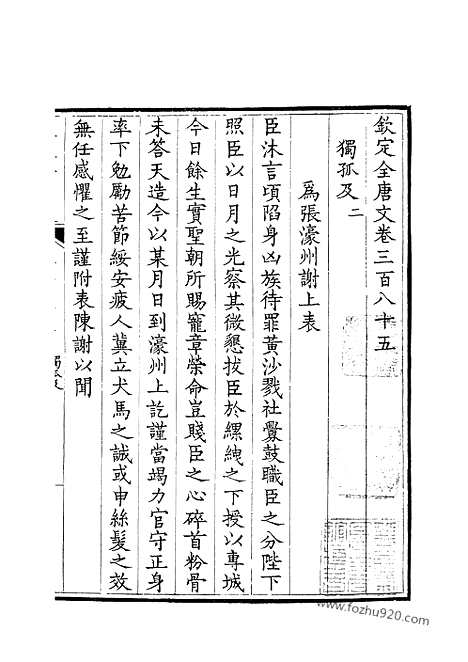 欽定全唐文卷三百八十五
獨孤及二
為張濠州謝上表
臣沐言頃陷身凶族待罪黃沙戮社釁鼓職臣之分陛下
照臣以日月之光察其微懇拔臣於縲絏之下授以專城
今日餘生實聖朝所賜寵章榮命豈賤臣之心碎首粉骨
未答天造今以某月日到濠州上訖謹當竭力官守正身
率下勉勵苦節綏安疲人冀立犬馬之誠或申絲髮之效
無任感懼之至謹附表陳謝以聞
www.fozhu920.com